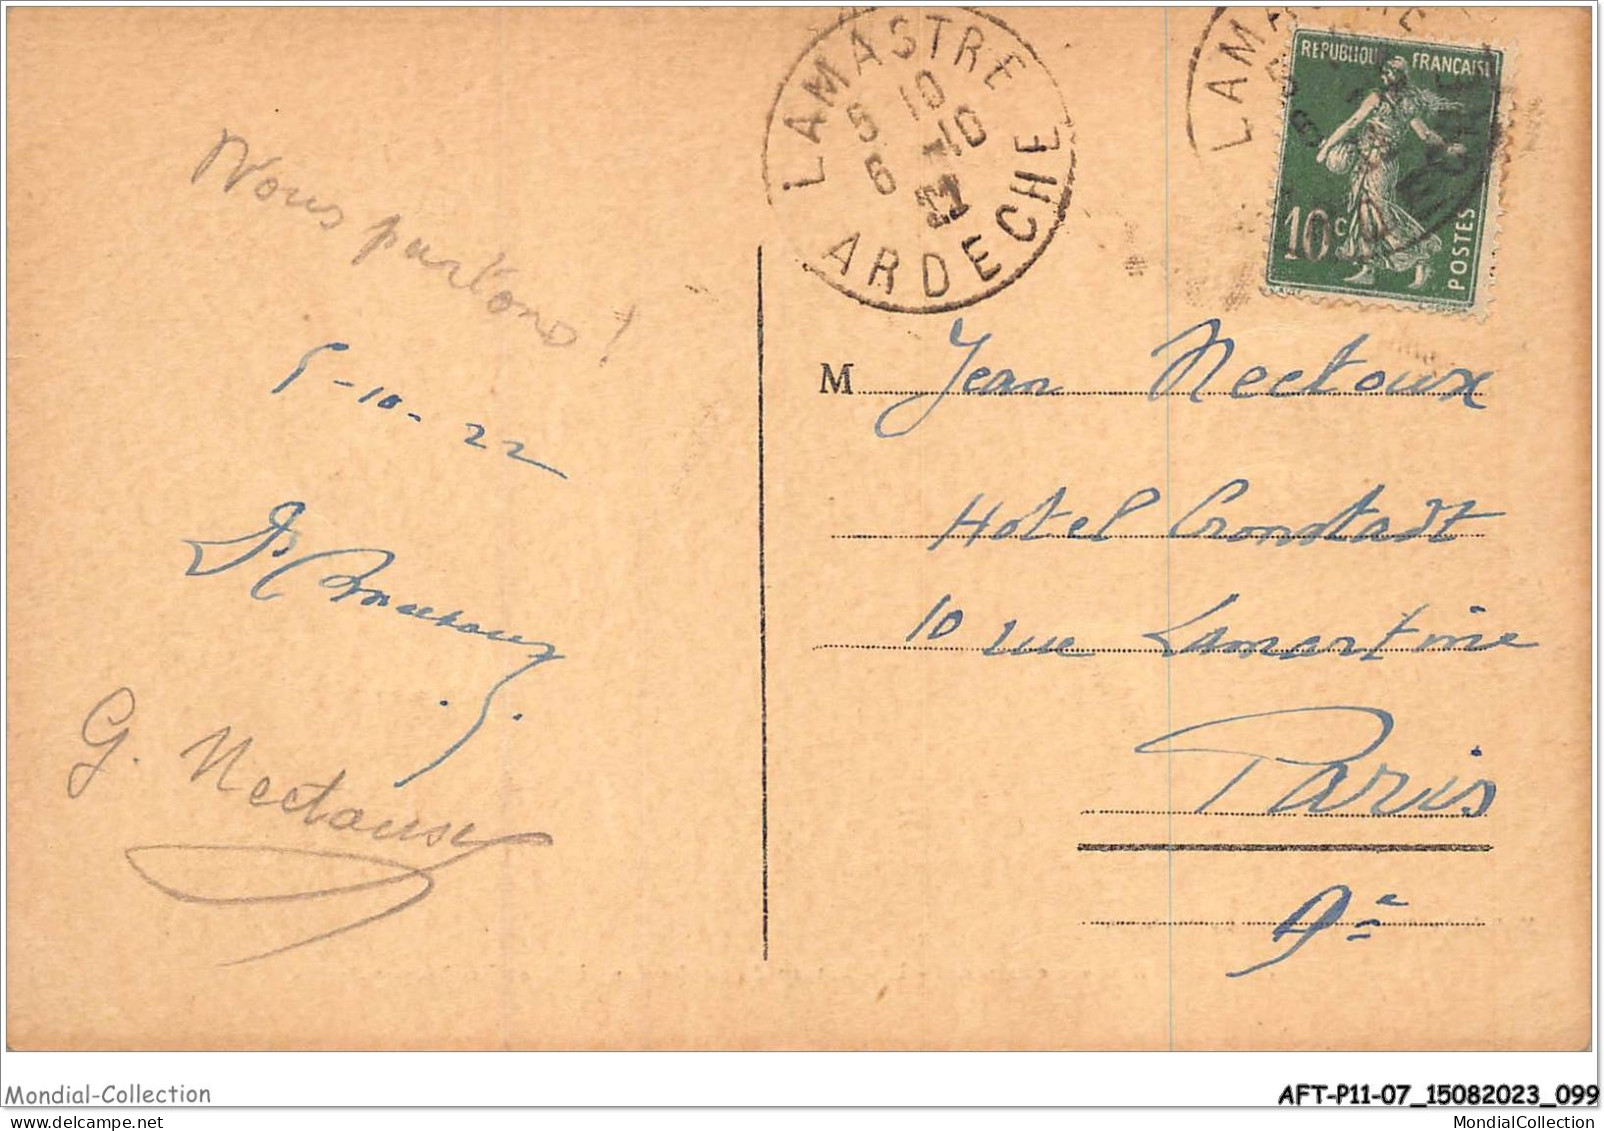 LAMASTRE
5 10
6 -10
ARDECHE
LAMASTRE
ARDECHE
REPUBLIQUE FRANÇAISE
10c
POSTES
Nous partons !
5-10-22
G. Nectoux
M Jean Nectoux
Hotel Cronstadt
10 rue Lamartine
Paris
9e
Mondial-Collection
AFT-P11-07_15082023_099
www.delcampe.net
MondialCollection